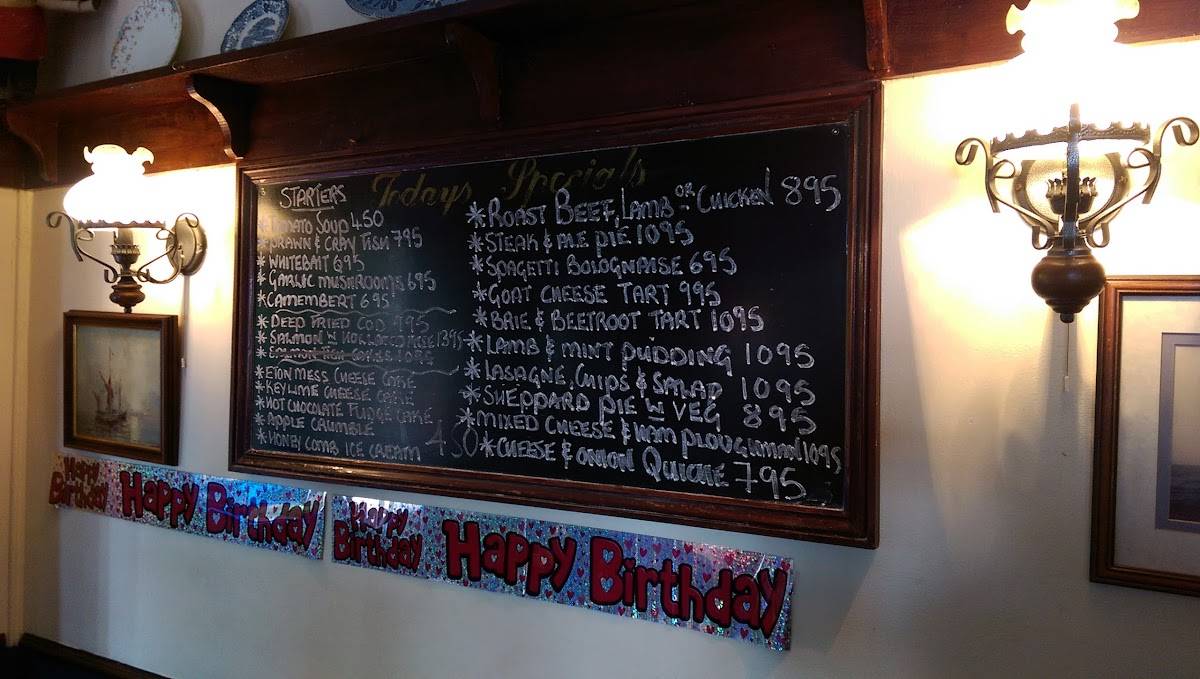 Todays Specials
STARTERS
* TOMATO SOUP 450
* PRAWN & CRAY FISH 795
* WHITEBAIT 695
* GARLIC MUSHROOMS 695
* CAMEMBERT 695
* DEEP FRIED COD 995
* SALMON W HOLLONDAISE 1395
* SALMON FISH CAKES 1095
* ETON MESS CHEESE CAKE
* KEY LIME CHEESE CAKE
* HOT CHOCOLATE FUDGE CAKE
* APPLE CRUMBLE
* HONEY COMB ICE CREAM 450
* ROAST BEEF, LAMB OR CHICKEN 895
* STEAK & ALE PIE 1095
* SPAGETTI BOLOGNAISE 695
* GOAT CHEESE TART 995
* BRIE & BEETROOT TART 1095
* LAMB & MINT PUDDING 1095
* LASAGNE, CHIPS & SALAD 1095
* SHEPPARD PIE W VEG 895
* MIXED CHEESE & HAM PLOUGHMAN 1095
* CHEESE & ONION QUICHE 795
Happy Birthday Happy Birthday
Happy Birthday Happy Birthday